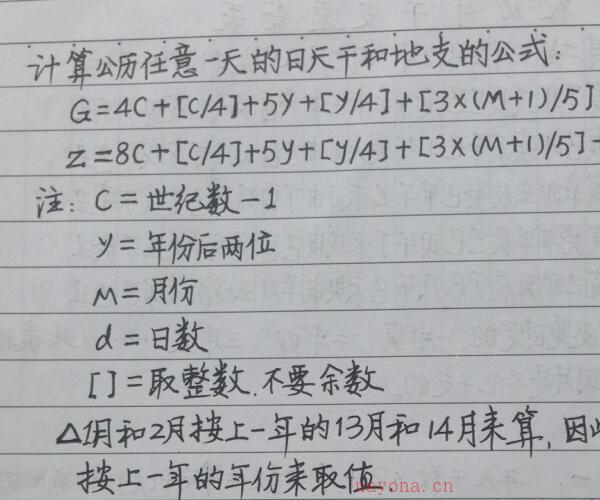 计算公历任意一天的日天干和地支的公式:
G=4C+[C/4]+5y+[y/4]+[3×(M+1)/5]
Z=8C+[C/4]+5y+[y/4]+[3×(M+1)/5]-
注: C=世纪数-1
y=年份后两位
M=月份
d=日数
[]=取整数.不要余数
△1月和2月按上一年的13月和14月来算,因此
按上一年的年份来取值.
nayona.cn